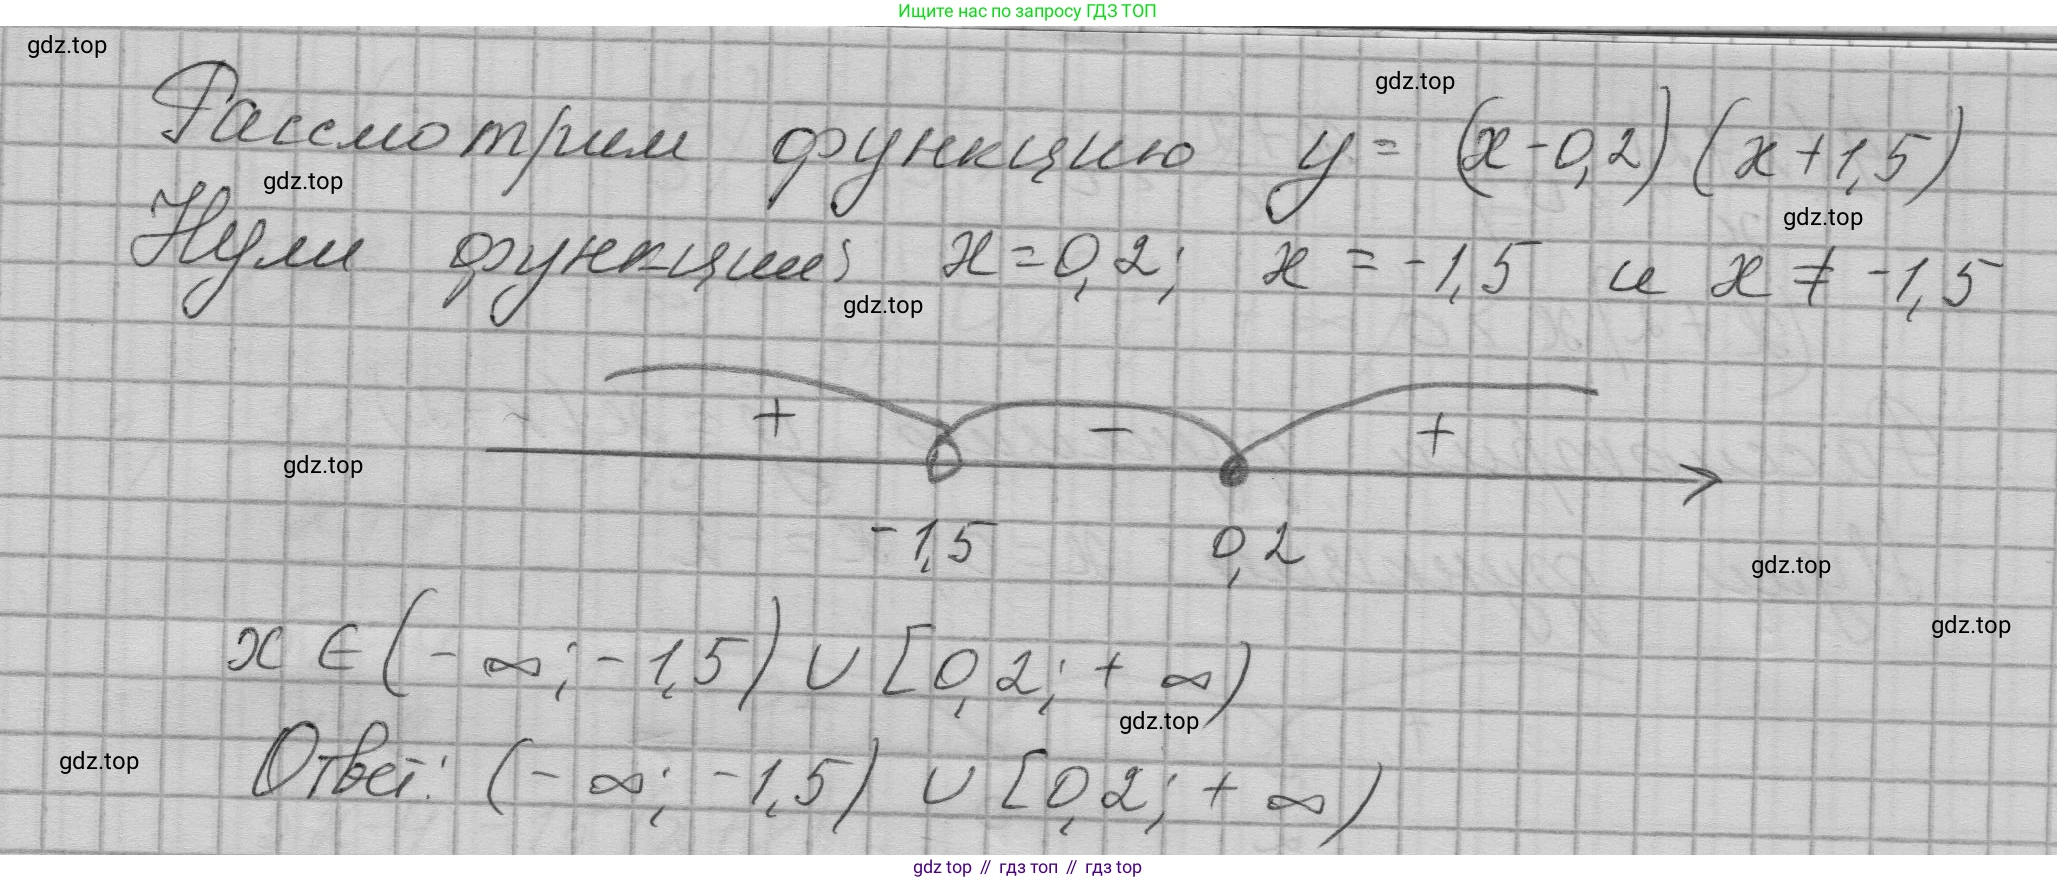 Ищите нас по запросу ГДЗ ТОП
gdz.top
gdz.top
Рассмотрим функцию y = (x - 0,2) (x + 1,5)
gdz.top
gdz.top
Нули функции: x = 0,2; x = -1,5 и x ≠ -1,5
gdz.top
+ − +
gdz.top
-1,5 0,2
gdz.top
gdz.top
x ∈ (-∞; -1,5) ∪ [0,2; +∞)
gdz.top
gdz.top
Ответ: (-∞; -1,5) ∪ [0,2; +∞)
gdz top // гдз топ // гдз top